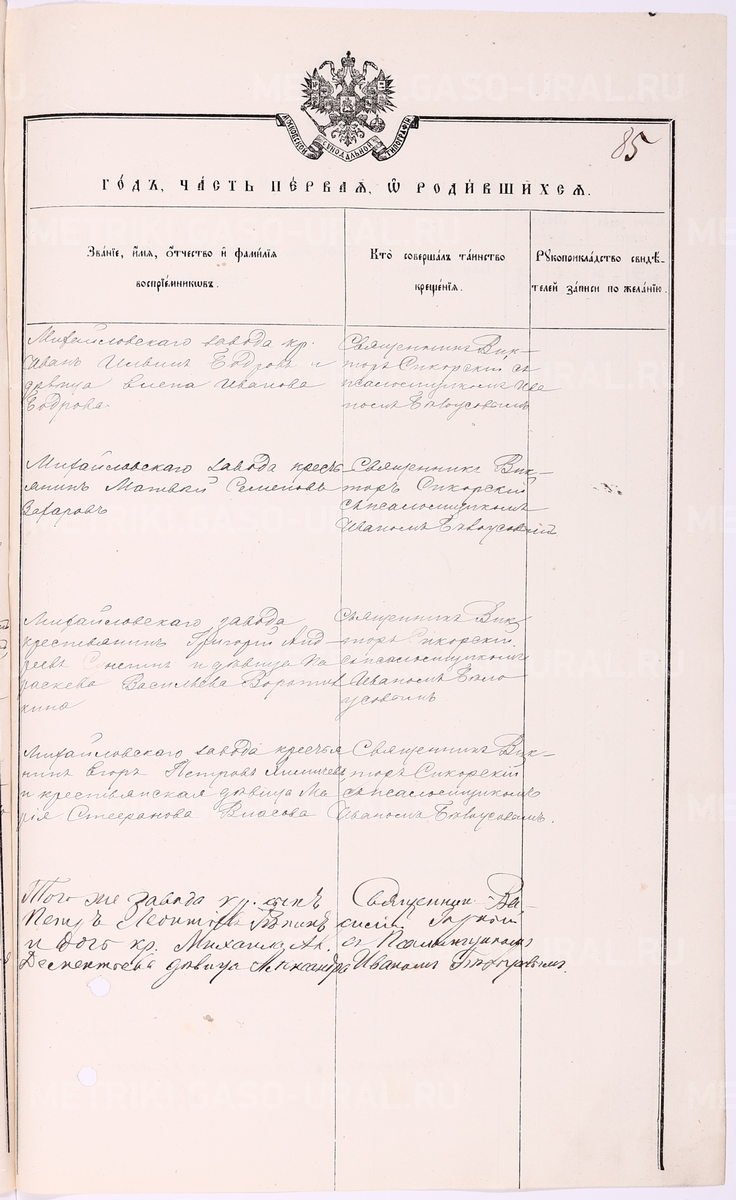 85
МОСКОВСКОЙ СѴНОДАЛЬНОЙ ТИПОГРАФІИ
ГО́ДЪ, ЧА́СТЬ ПЕ́РВАЯ, Ѽ РОДИ́ВШИХСЯ.
Зва́ніе, и҆́мя, ѻ҆́тчество и҆ фами́лія
воспрїе́мникѡвъ.
Кто̀ соверша́лъ та́инство
креще́нія.
Рꙋкоприкла́дство свидѣ́-
телей за́писи по жела́нію.
Михайловскаго завода кр.
Иванъ Ильинъ Бодровъ и
дѣвица Елена Иванова
Бодрова.
Священникъ Вик-
торъ Сикорскій съ
псаломщикомъ Ива
номъ Бѣлоусовымъ
Михайловскаго завода кресть
янинъ Матвѣй Семеновъ
Захаровъ
Священникъ Вик-
торъ Сикорскій
съ псаломщикомъ
Иваномъ
Михайловскаго завода
крестьянинъ Григорій Анд
реевъ и дѣвица Па
раскева Васильева
кина
Священникъ Вик
торъ Сикорскій
съ псаломщикомъ
Иваномъ Бѣло
усовымъ
Михайловскаго завода крестья
нинъ Егоръ Петровъ
и крестьянская дѣвица Ма
рія Стефанова Власова
Священникъ Вик-
торъ Сикорскій
съ псаломщикомъ
Иваномъ Бѣлоусовымъ.
Того же завода кр. сынъ
Петръ Леонтьевъ
и дочь кр. Михаила Ал.
Дементьева дѣвица
Священник Ва-
силій
съ Псаломщикомъ
Иваномъ
METRIKI.GASO-URAL.RU